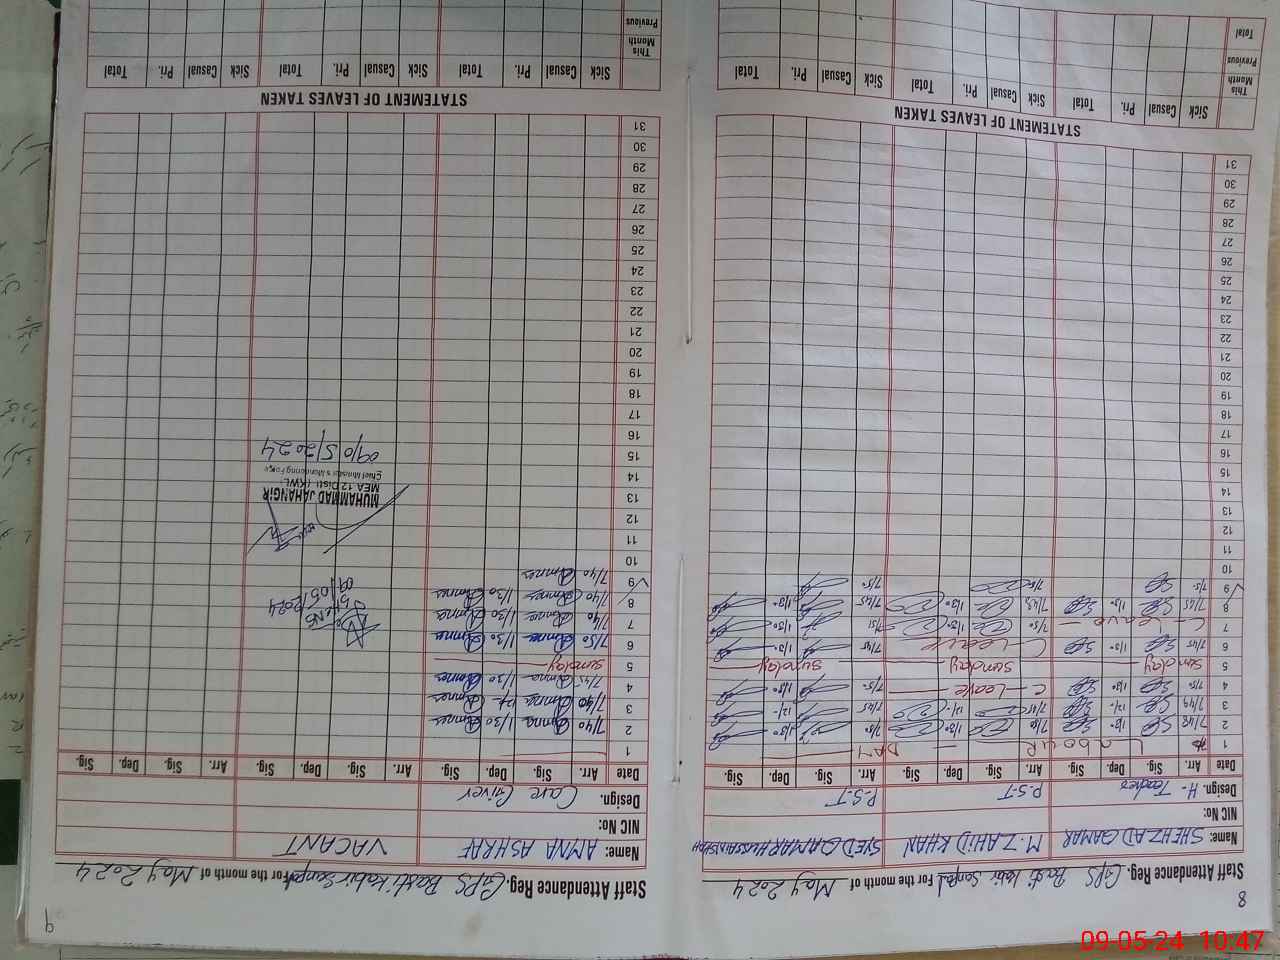 8
Staff Attendance Reg. GPS Basti Kabir Sanpal For the month of May 2024
Name: SHEHZAD QAMAR M. ZAHID KHAN SYED QAMAR HUSSAIN SHAH
NIC No:
Design. H-Teacher P.S.T P.S.T
Date Arr. Sig. Dep. Sig. Arr. Sig. Dep. Sig. Arr. Sig. Dep. Sig.
1 Labour DAY
2 7/48 1/30 1/30 7/50 1/30
3 7/49 12/- 7/45 12/- 7/45 12/-
4 7/50 1/30 C Leave 7/50 1/30
5 Sunday Sunday Sunday Sunday
6 7/45 1/30 C Leave 7/48 1/30
7 C Leave 7/50 1/30 7/51 1/30
8 7/45 1/30 7/45 1/30 7/45 1/30
9 7/51 7/50 7/50
10
11
12
13
14
15
16
17
18
19
20
21
22
23
24
25
26
27
28
29
30
31
STATEMENT OF LEAVES TAKEN
Sick Casual Pri. Total Sick Casual Pri. Total Sick Casual Pri. Total
This Month
Previous
Total
9
Staff Attendance Reg. GPS Basti Kabir Sanpal For the month of May 2024
Name: AMNA ASHRAF VACANT
NIC No:
Design. Care Giver
Date Arr. Sig. Dep. Sig. Arr. Sig. Dep. Sig. Arr. Sig. Dep. Sig.
1
2 7/40 Amna 1/30 Amna
3 7/40 Amna 12/- Amna
4 7/45 Amna 1/30 Amna
5 Sunday
6 7/50 Amna 1/30 Amna
7 7/40 Amna 1/30 Amna
8 7/40 Amna 1/30 Amna
9 7/40 Amna
09/05/2024
10
11
12
13
MUHAMMAD JAHANGIR
MEA 12 Distt (KWL)
Chief Minister's Monitoring Force
09/05/2024
14
15
16
17
18
19
20
21
22
23
24
25
26
27
28
29
30
31
STATEMENT OF LEAVES TAKEN
Sick Casual Pri. Total Sick Casual Pri. Total Sick Casual Pri. Total
This Month
Previous
09-05-24 10:47